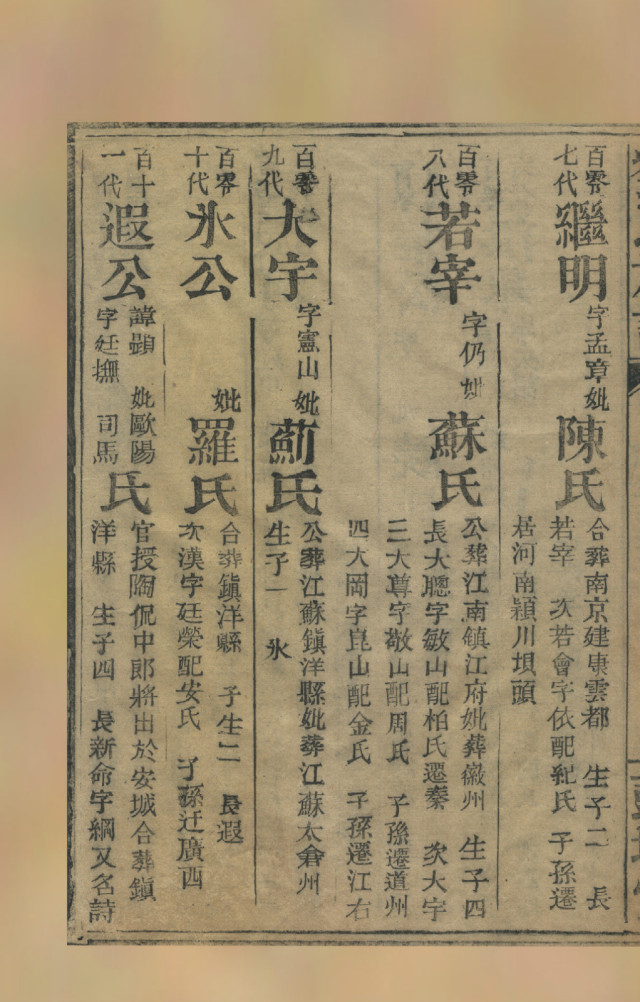 百零七代
繼明
字孟章妣
陳氏
合葬南京建東雲都 生子二 長
若宰 次若會字依配紀氏 子孫遷
居河南穎川垻頭
百零八代
若宰
字仍 妣
蘇氏
公葬江南鎮江府妣葬徽州 生子四
長大聰字敏山配柏氏遷秦 次大宇
三大尊字敬山配周氏 子孫遷道州
四大岡字崑山配金氏 子孫遷江右
百零九代
大宇
字憲山 妣
薊氏
公葬江蘇鎮洋縣妣葬江蘇太倉州
生子一 氷
百零十代
氷公
妣
羅氏
合葬鎮洋縣 子生二 長遐
次漢字廷榮配安氏 子孫迁廣西
百十一代
遐公
諱顕 妣歐陽
字廷撫 司馬
氏
官授陶侃中郎將出於安城合葬鎮
洋縣 生子四 長新命字綱又名詩